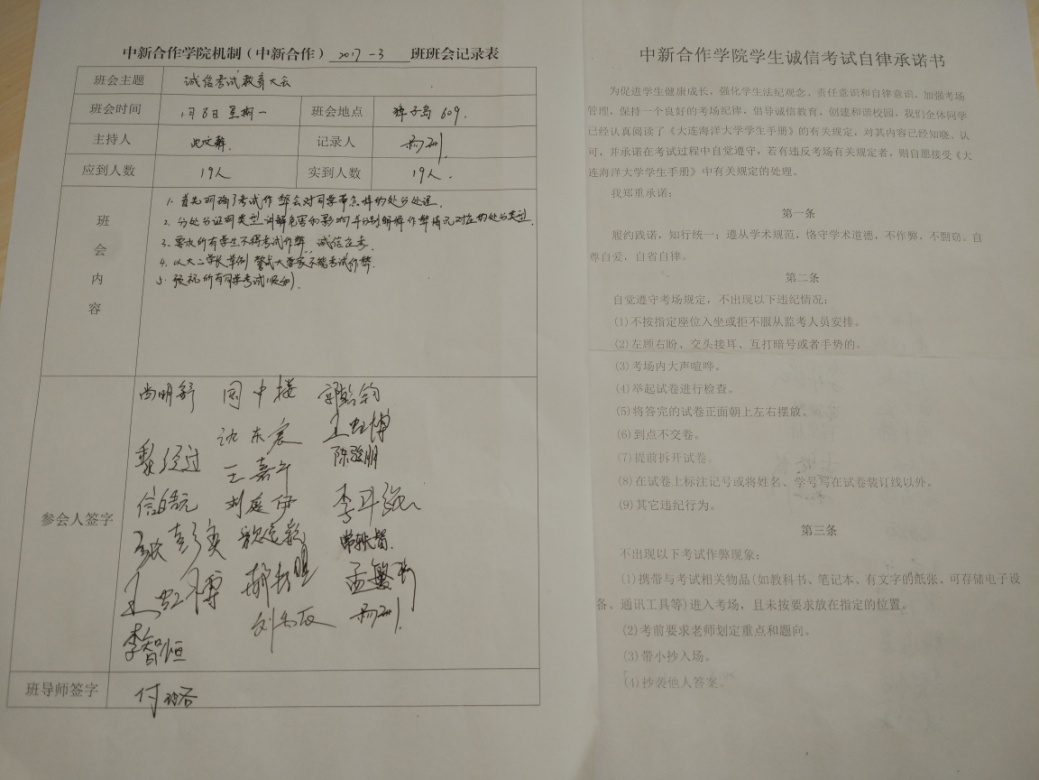 中新合作学院机制(中新合作) 2017-3 班班会记录表
班会主题 诚信考试教育大会
班会时间 1月8日 星期一 班会地点 獐子岛 609.
主持人 记录人
应到人数 19人 实到人数 19人.
班会内容
1. 首先明确了考试作弊会对同学带来怎样的处分处理.
2. 分处分证明类型,讲解危害和影响并分别解释作弊情况对应的处分类型.
3. 要求所有学生不得考试作弊,诚信应考.
4. 以大二学长举例 警示大家不能考试作弊.
5. 预祝所有同学考试顺利.
参会人签字
尚明轩
王嘉午
陈骏朋
李斗强
李智恒
班导师签字
中新合作学院学生诚信考试自律承诺书
为促进学生健康成长,强化学生法纪观念、责任意识和自律意识,加强考场
管理,保持一个良好的考场纪律,倡导诚信教育,创建和谐校园,我们全体同学
已经认真阅读了《大连海洋大学学生手册》的有关规定,对其内容已经知晓、认
可,并承诺在考试过程中自觉遵守,若有违反考场有关规定者,则自愿接受《大
连海洋大学学生手册》中有关规定的处理。
我郑重承诺:
第一条
履约践诺,知行统一;遵从学术规范,恪守学术道德,不作弊,不剽窃,自
尊自爱,自省自律。
第二条
自觉遵守考场规定,不出现以下违纪情况:
(1)不按指定座位入坐或拒不服从监考人员安排。
(2)左顾右盼、交头接耳、互打暗号或者手势的。
(3)考场内大声喧哗。
(4)举起试卷进行检查。
(5)将答完的试卷正面朝上左右摆放。
(6)到点不交卷。
(7)提前拆开试卷。
(8)在试卷上标注记号或将姓名、学号写在试卷装订线以外。
(9)其它违纪行为。
第三条
不出现以下考试作弊现象:
(1)携带与考试相关物品(如教科书、笔记本、有文字的纸张、可存储电子设
备、通讯工具等)进入考场,且未按要求放在指定的位置。
(2)考前要求老师划定重点和题向。
(3)带小抄入场。
(4)抄袭他人答案。